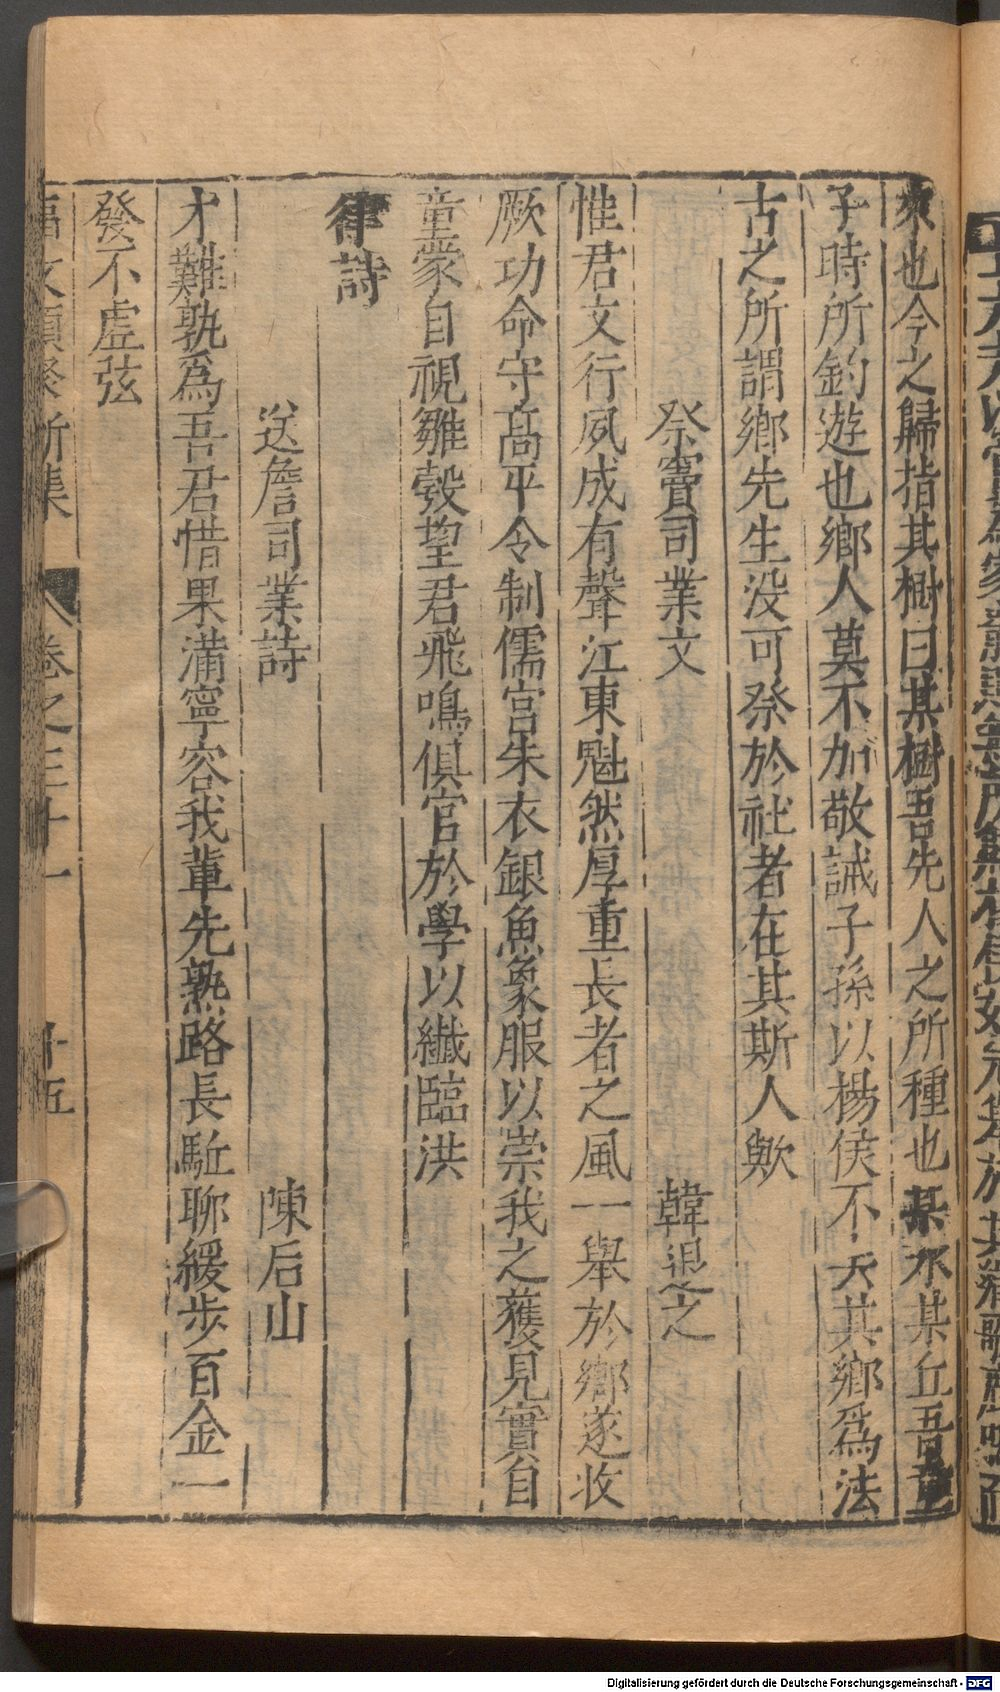 來也今之歸指其樹曰某樹吾先人之所種也某水某丘吾童
子時所釣遊也鄉人莫不加敬誡子孫以楊侯不去其鄉爲法
古之所謂鄉先生没可祭於社者在其斯人歟
祭竇司業文 韓退之
惟君文行夙成有聲江東魁然厚重長者之風一舉於鄉遂收
厥功命守高平令制儒宮朱衣銀魚象服以崇我之獲見實自
童蒙自視雛鷇望君飛鳴俱官於學以纖臨洪
律詩
送詹司業詩 陳后山
才難孰爲吾君惜果滿寧容我輩先熟路長駈聊緩步百金一
發不虚弦
文類聚新集 卷之三十一 十五
Digitalisierung gefördert durch die Deutsche Forschungsgemeinschaft - DFG